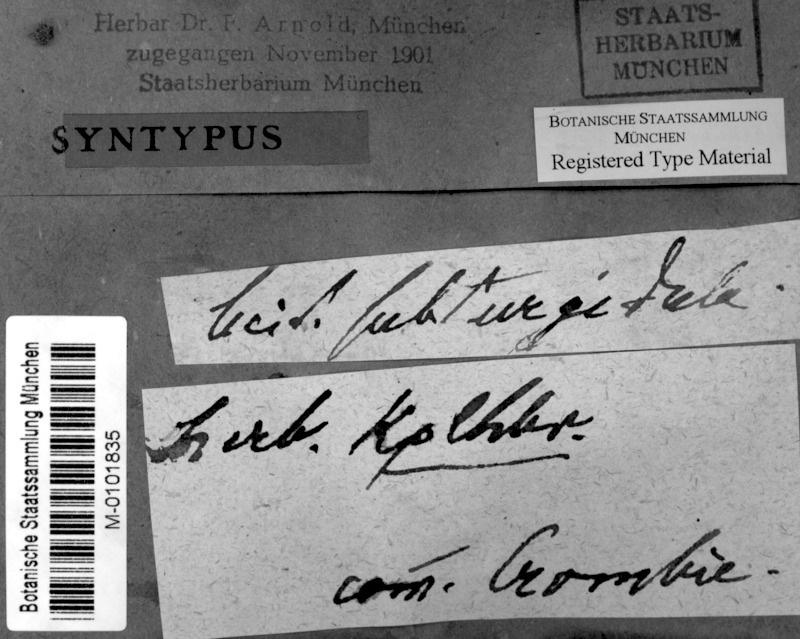 Herbar Dr. F. Arnold, München
zugegangen November 1901
Staatsherbarium München
STAATS-
HERBARIUM
MÜNCHEN
SYNTYPUS
BOTANISCHE STAATSSAMMLUNG
MÜNCHEN
Registered Type Material
Lecid. subturgidula.
herb. Kplhbr.
com̄. Crombie.
Botanische Staatssammlung München
M-0101835